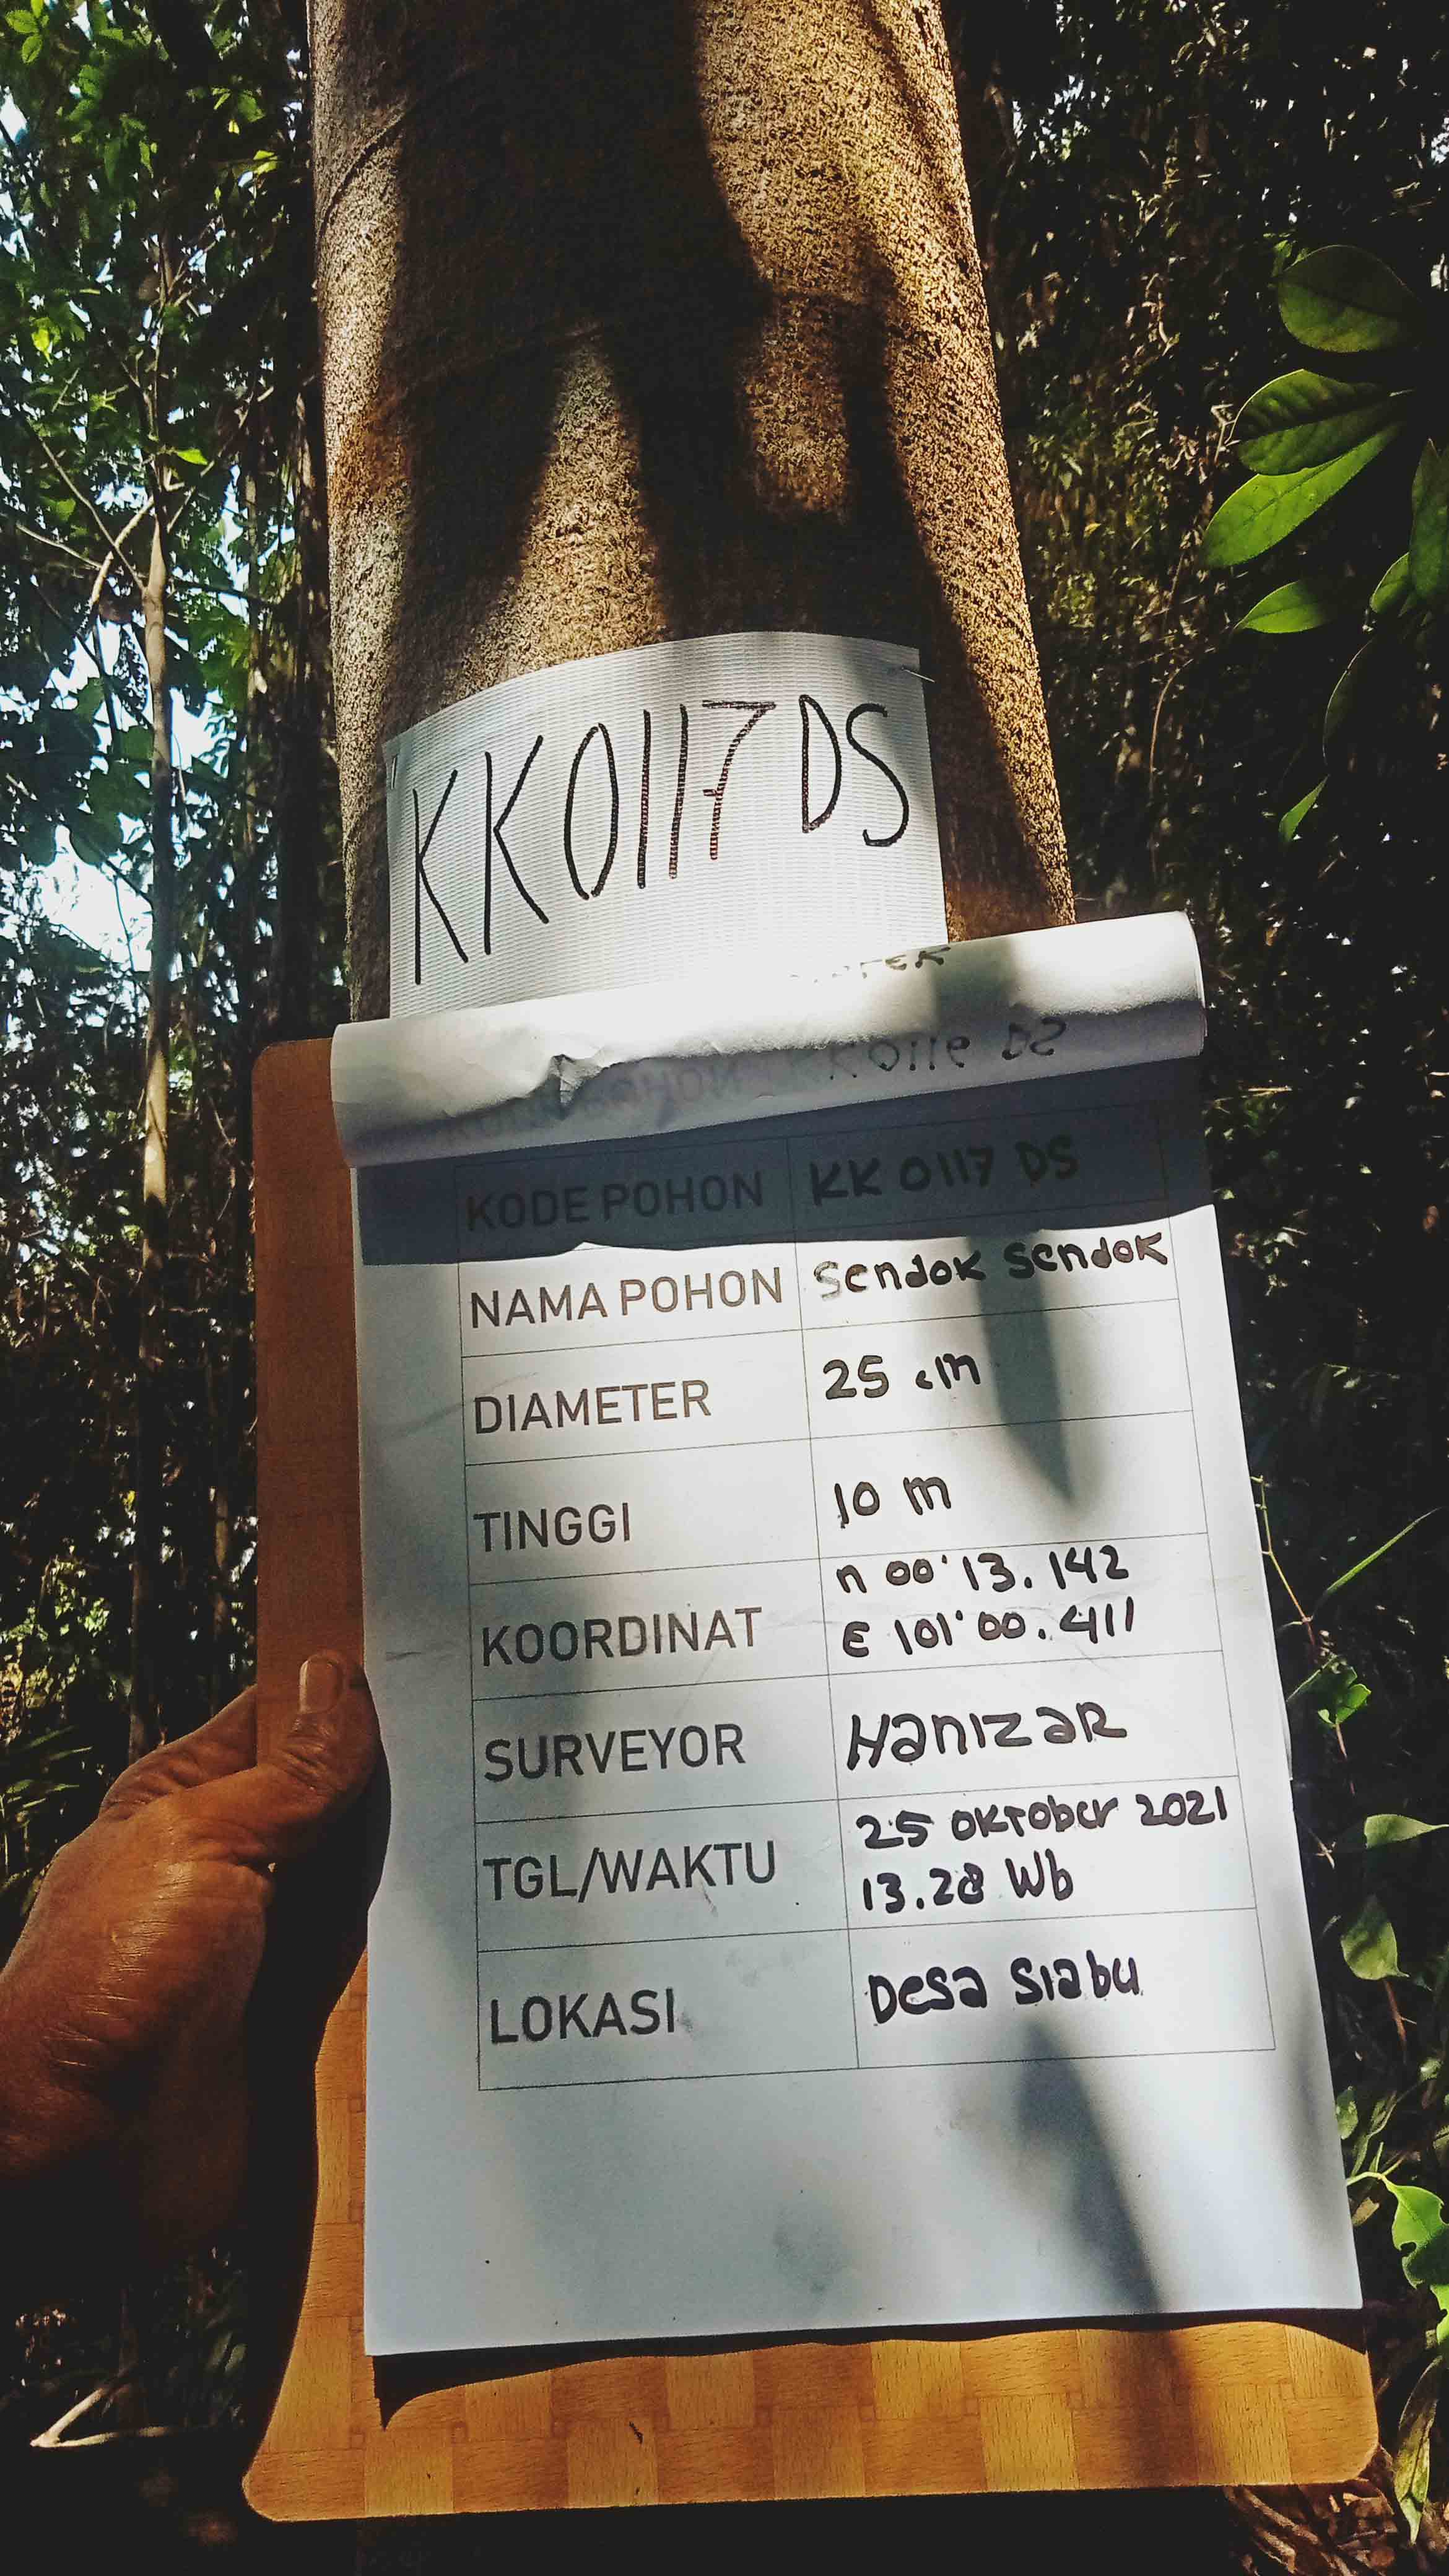 KK0117 DS
KK0119 DS
KODE POHON KK 0117 DS
NAMA POHON Sendok Sendok
DIAMETER 25 cm
TINGGI 10 m
KOORDINAT n 00'13.142
E 101'00.411
SURVEYOR HanizaR
TGL/WAKTU 25 oktober 2021
13.28 Wb
LOKASI Desa Siabu